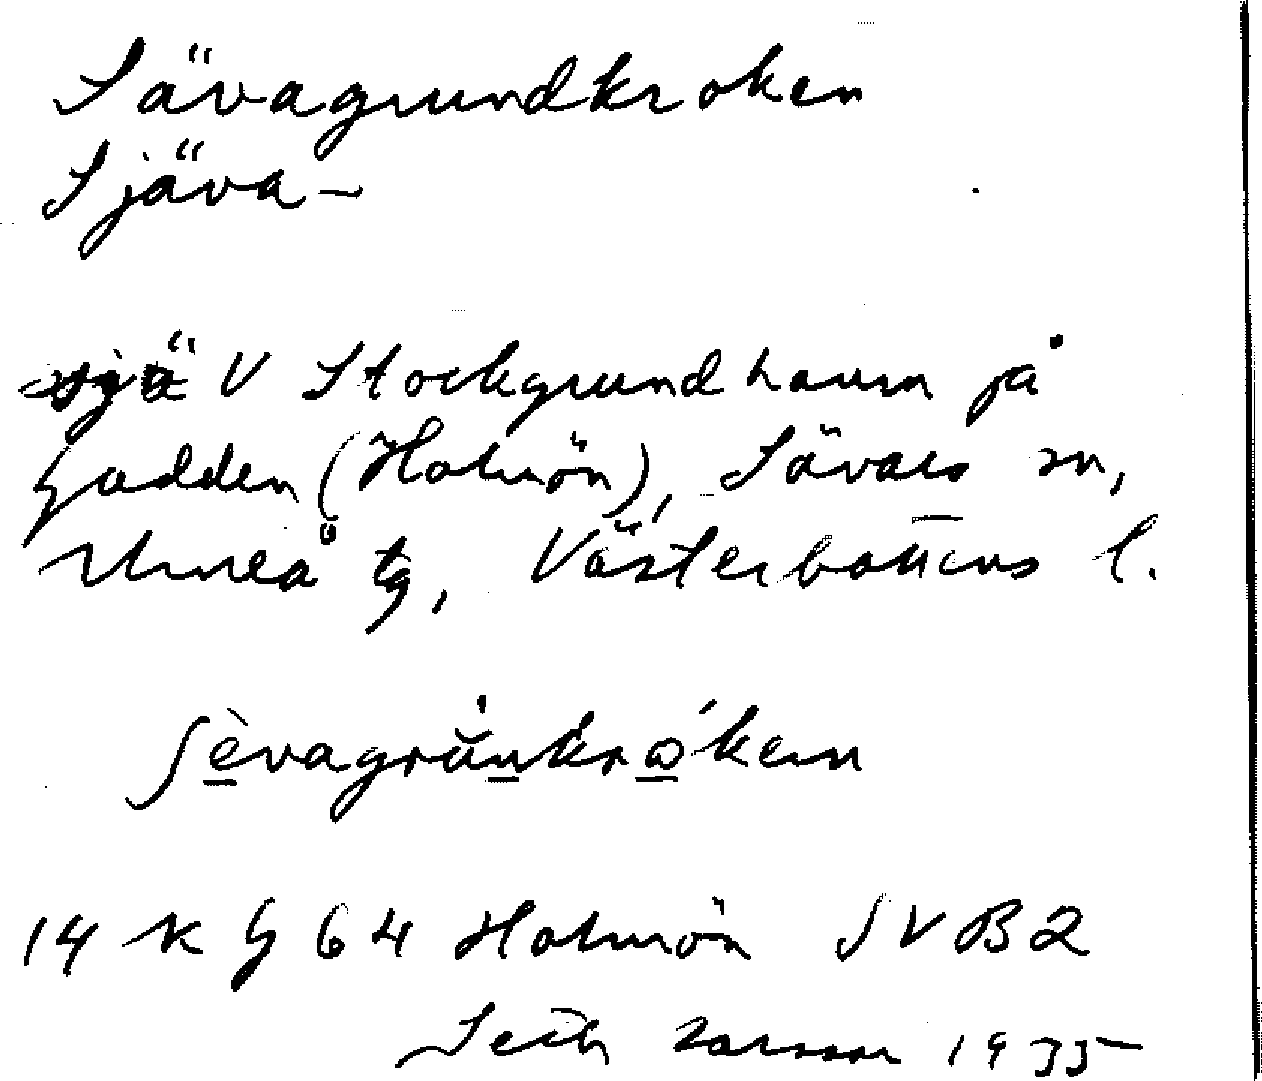 Sävagrundkroken
Sjäva-
V Stockgrundhamn på
Gadden (Holmön), Sävars sn,
Umeå tg, Västerbottens l.
ʃèvagrùnkrǿken
14 K G 64 Holmön SVB2
Seth Larsson 1935